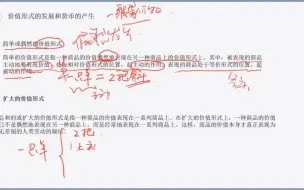 价值形式的发展和货币的产生
一般等价物
简单或偶然的价值形式
简单价值形式是指一种商品的价值偶然地表现在另一种商品上的价值形式上。其中，被表现的商品
主动地
相对价值形式的位置，起主动的作用；表现的商品处于等价形式的位置，起
被动的作用。
一只羊 = 2把斧子
扩大的价值形式
总和的或扩大的价值形式是指一种商品的价值表现在一系列商品上。在扩大的价值形式上，一种商品的价值
已不是偶然地表现在另一种商品上，而是经常地表现在一系列商品上。这样，商品的价值本身才真正表现为
无差别的人类劳动的凝结。
一只羊
2把
1上衣